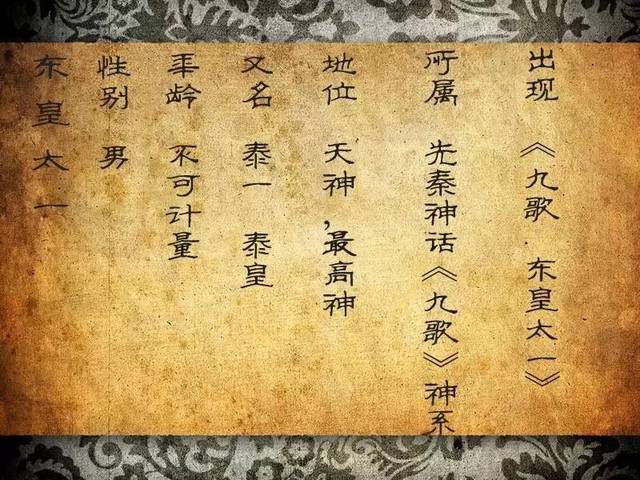 东皇太一
性别 男
年龄 不可计量
又名 泰一 泰皇
地位 天神，最高神
所属 先秦神话《九歌》神系
出现 《九歌·东皇太一》